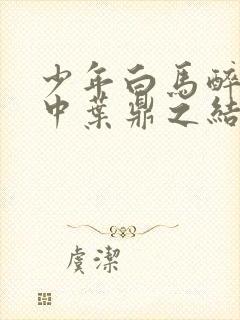 少年白馬醉
中葉鼎之結
虞潔